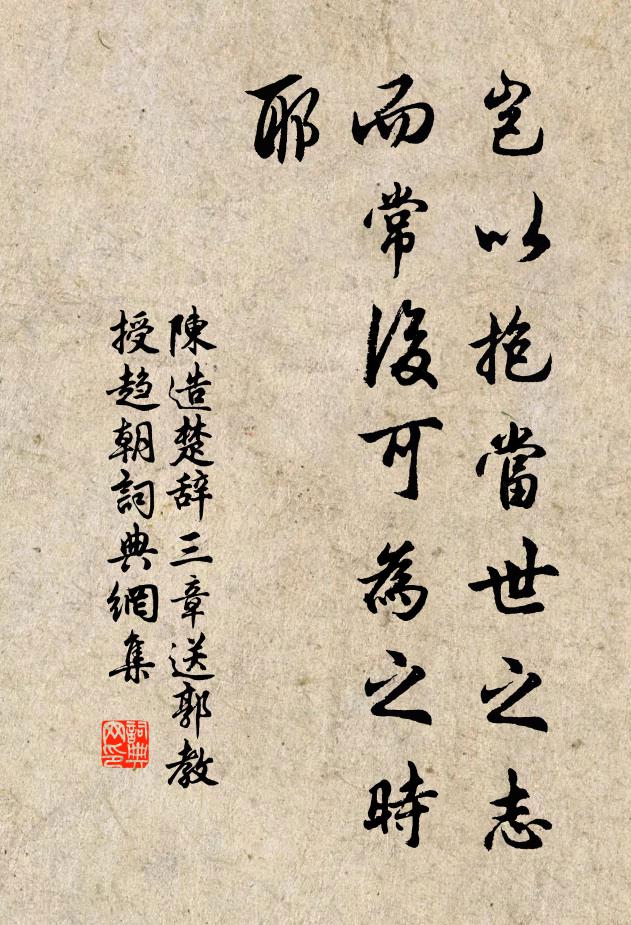 豈以抱當世之志
而常後可為之時
耶
陳造楚辞三章送郭教
授趋朝詞典網集
詞典网印